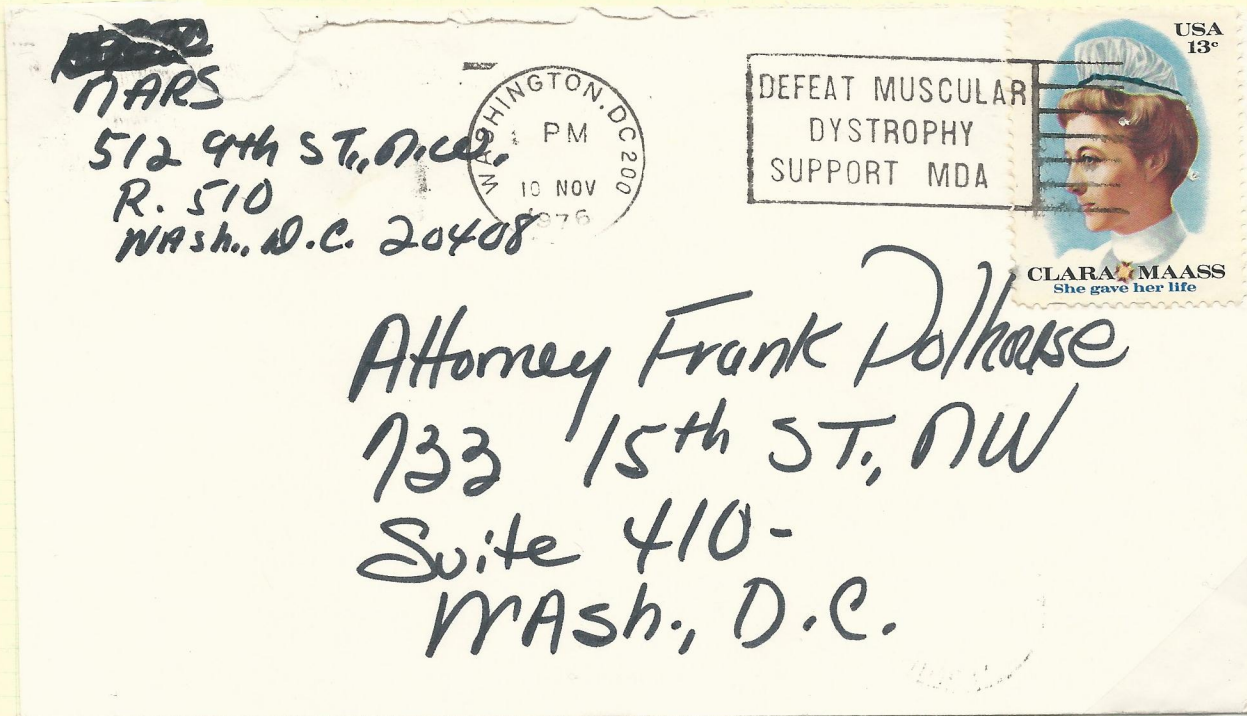 MARS
512 9th ST., N.W.
R. 510
WAsh., D.C. 20408
WASHINGTON, DC 200
PM
10 NOV
1976
DEFEAT MUSCULAR
DYSTROPHY
SUPPORT MDA
USA
13c
CLARA MAASS
She gave her life
Attorney Frank Dolhouse
733 15th ST., NW
Suite 410-
WAsh., D.C.